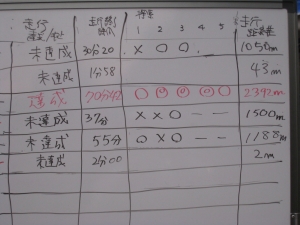 走行 走行 走行
達成/未達 時間 1 2 3 4 5 距離
未達成 30分20 × ○ ○ 1050m
未達成 1分58 43m
達成 70分42 ○ ○ ○ ○ ○ 2392m
未達成 37分 × × ○ - - 1500m
未達成 55分 ○ × ○ - - 1188m
未達成 2分00 2m